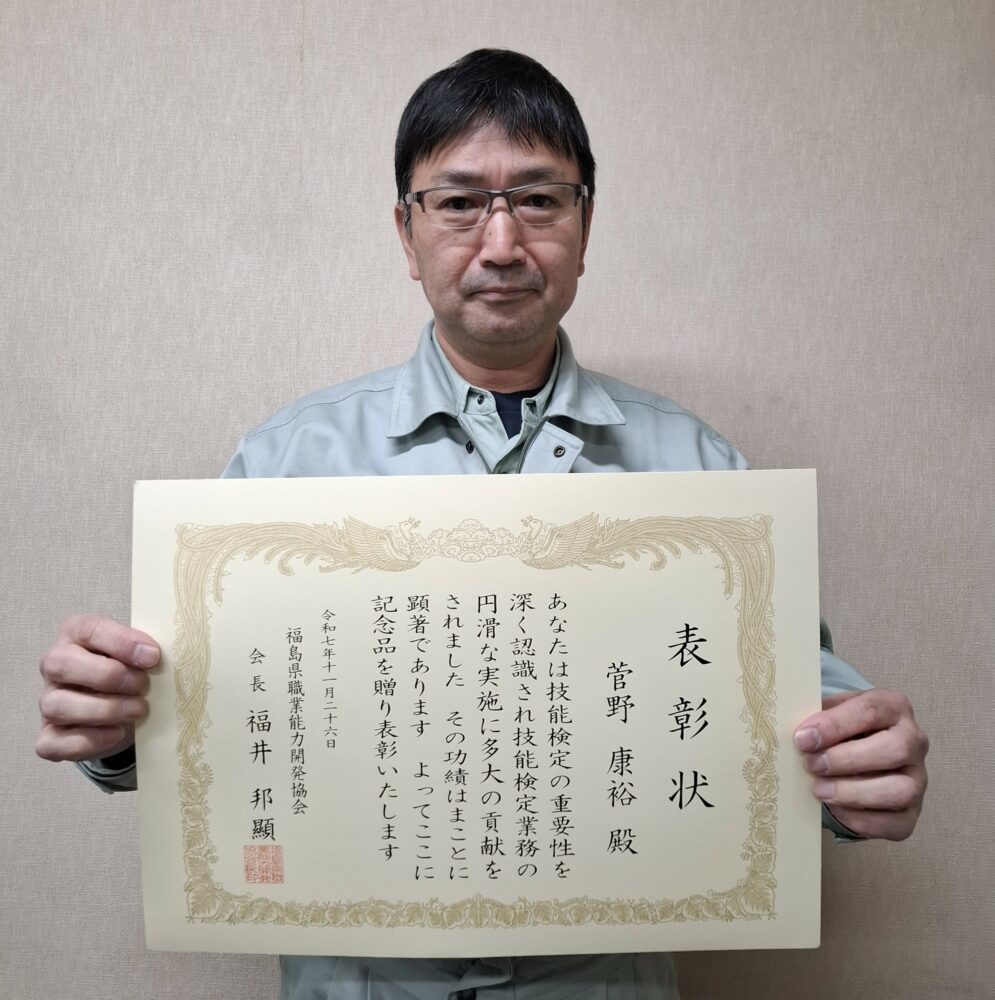 表彰状
菅野 康裕 殿
あなたは技能検定の重要性を
深く認識され技能検定業務の
円滑な実施に多大の貢献を
されました その功績はまことに
顕著であります よってここに
記念品を贈り表彰いたします
令和七年十一月二十六日
福島県職業能力開発協会
会長 福井 邦顯